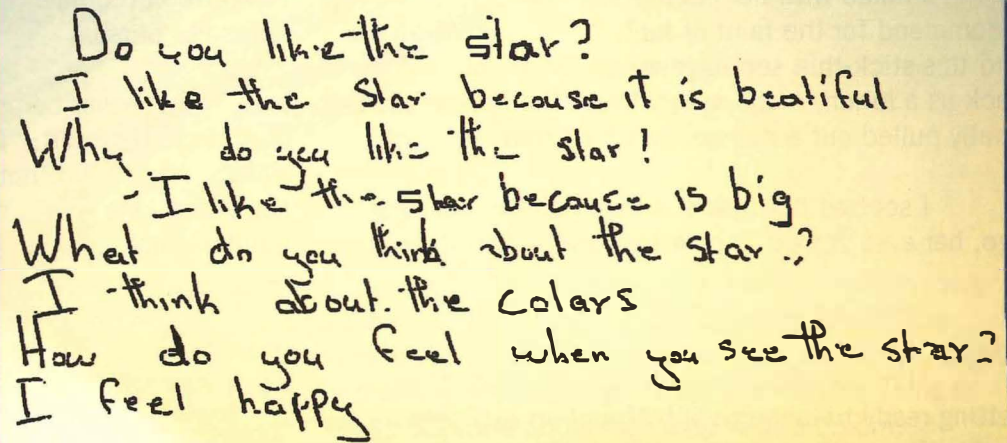 Do you like the star?
I like the Star because it is beatiful
Why do you like the star!
I like the star because is big
What do you think about the star?
I think about the colars
How do you feel when you see the star?
I feel happy